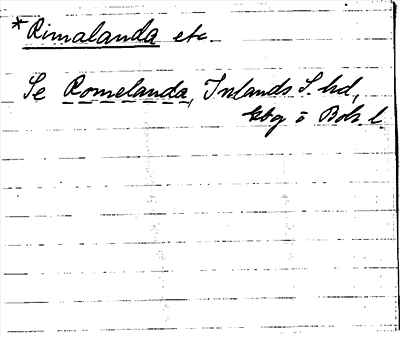 *Rimalanda etc.
Se Romelanda, Inlands S. hd,
Gbg o Boh. l.